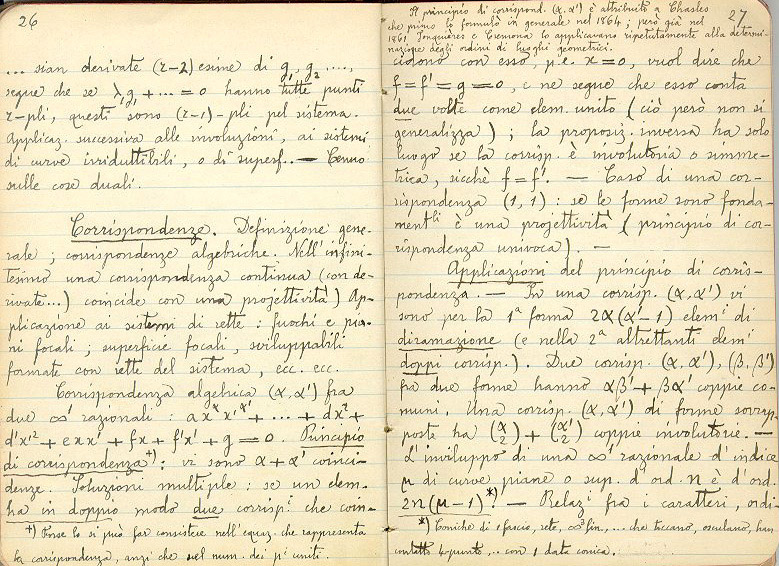 26
... sian derivate (r-2) esime di g₁, g₂ ....,
segue che se λ₁g₁ + ... = 0 hanno tutte punti
r-pli, questi sono (r-1)-pli pel sistema.
Applicaz. successiva alle involuzioni, ai sistemi
di curve irriduttibili, o di superf.. — Cenno
sulle cose duali.
Corrispondenze. Definizione gene-
rale; corrispondenze algebriche. Nell'infini-
tesimo una corrispondenza continua (con de-
rivate...) coincide con una projettività) Ap-
plicazione ai sistemi di rette: fuochi e pia-
ni focali; superficie focali, sviluppabili
formate con rette del sistema, ecc. ecc.
Corrispondenza algebrica (α, α') fra
due ∞' razionali: a x^α x'^α' + ... + dx² +
d'x'² + exx' + fx + f'x' + g = 0. Principio
di corrispondenza⁺⁾: vi sono α + α' coinci-
denze. Soluzioni multiple: se un elem.
ha in doppio modo due corrisp.ⁱ che coin-
+) Forse lo si può far consistere nell'equaz. che rappresenta
la corrispondenza, anzi che nel num. dei pⁱ uniti.
27
Il principio di corrispond. (α, α') è attribuito a Chasles
che primo lo formulò in generale nel 1864; però già nel
1861 Jonquières e Cremona lo applicavano ripetutamente alla determi-
nazione degli ordini di luoghi geometrici.
cidono con esso, p.e. x = 0, vuol dire che
f = f' = g = 0, e ne segue che esso conta
due volte come elem. unito (ciò però non si
generalizza); la proposiz. inversa ha solo
luogo se la corrisp. è involutoria o simme-
trica, sicchè f = f'. — Caso di una cor-
rispondenza (1, 1): se le forme sono fonda-
ment^li è una projettività (principio di cor-
rispondenza univoca). —
Applicazioni del principio di corris-
pondenza. — In una corrisp. (α, α') vi
sono per la 1ª forma 2α(α'-1) elemⁱ di
diramazione (e nella 2ª altrettanti elemⁱ
doppi corrisp.). Due corrisp. (α, α'), (β, β')
fra due forme hanno αβ' + βα' coppie co-
muni. Una corrisp. (α, α') di forme sovrap-
poste ha (α 2) + (α' 2) coppie involutorie. —
L'inviluppo di una ∞' razionale d'indice
μ di curve piane o sup. d'ord. n è d'ord.
2n(μ-1)*⁾. — Relazⁱ fra i caratteri, ordi-
*) Coniche di 1 fascio, rete, ∞³ lin., ... che toccano, osculano, han
contatto 4punto, .. con 1 data conica.